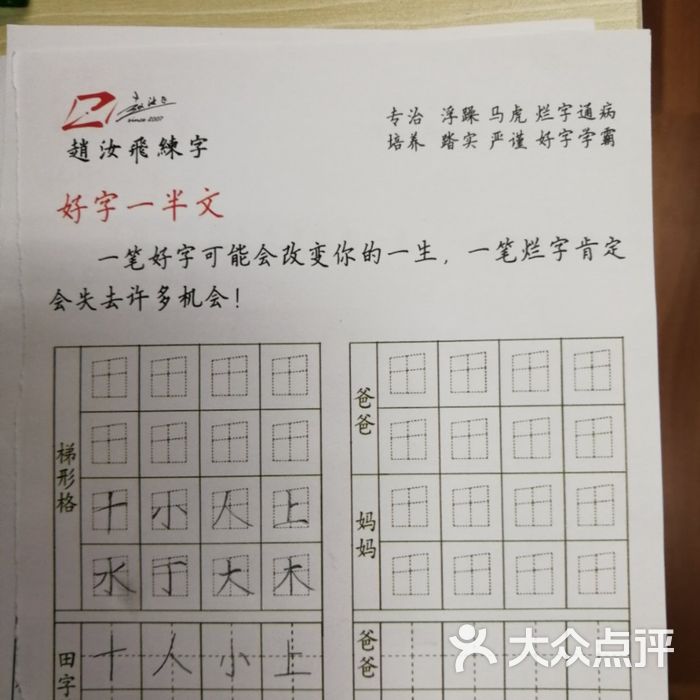 since 2007
趙汝飛練字
专治 浮躁 马虎 烂字通病
培养 踏实 严谨 好字学霸
好字一半文
一笔好字可能会改变你的一生，一笔烂字肯定
会失去许多机会！
梯形格
十 小 人 上
水 于 大 木
田字
十 人 小 上
爸爸
妈妈
爸爸
大众点评